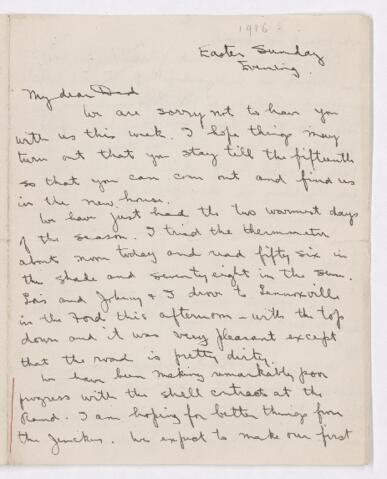 1916.
Easter Sunday
Evening.
My dear Dad
We are sorry not to have you
with us this week. I hope things may
turn out that you stay till the fifteenth
so that you can come out and find us
in the new house.
We have just had the two warmest days
of the season. I tried the thermometer
about noon today and read fifty six in
the shade and seventy eight in the sun.
Lois and Johnny & I drove to Lennoxville
in the Ford this afternoon - with the top
down and it was very pleasant except
that the road is pretty dirty.
We have been making remarkably poor
progress with the shell contracts at the
Rand. I am hoping for better things from
the Jenckes. We expect to make our first